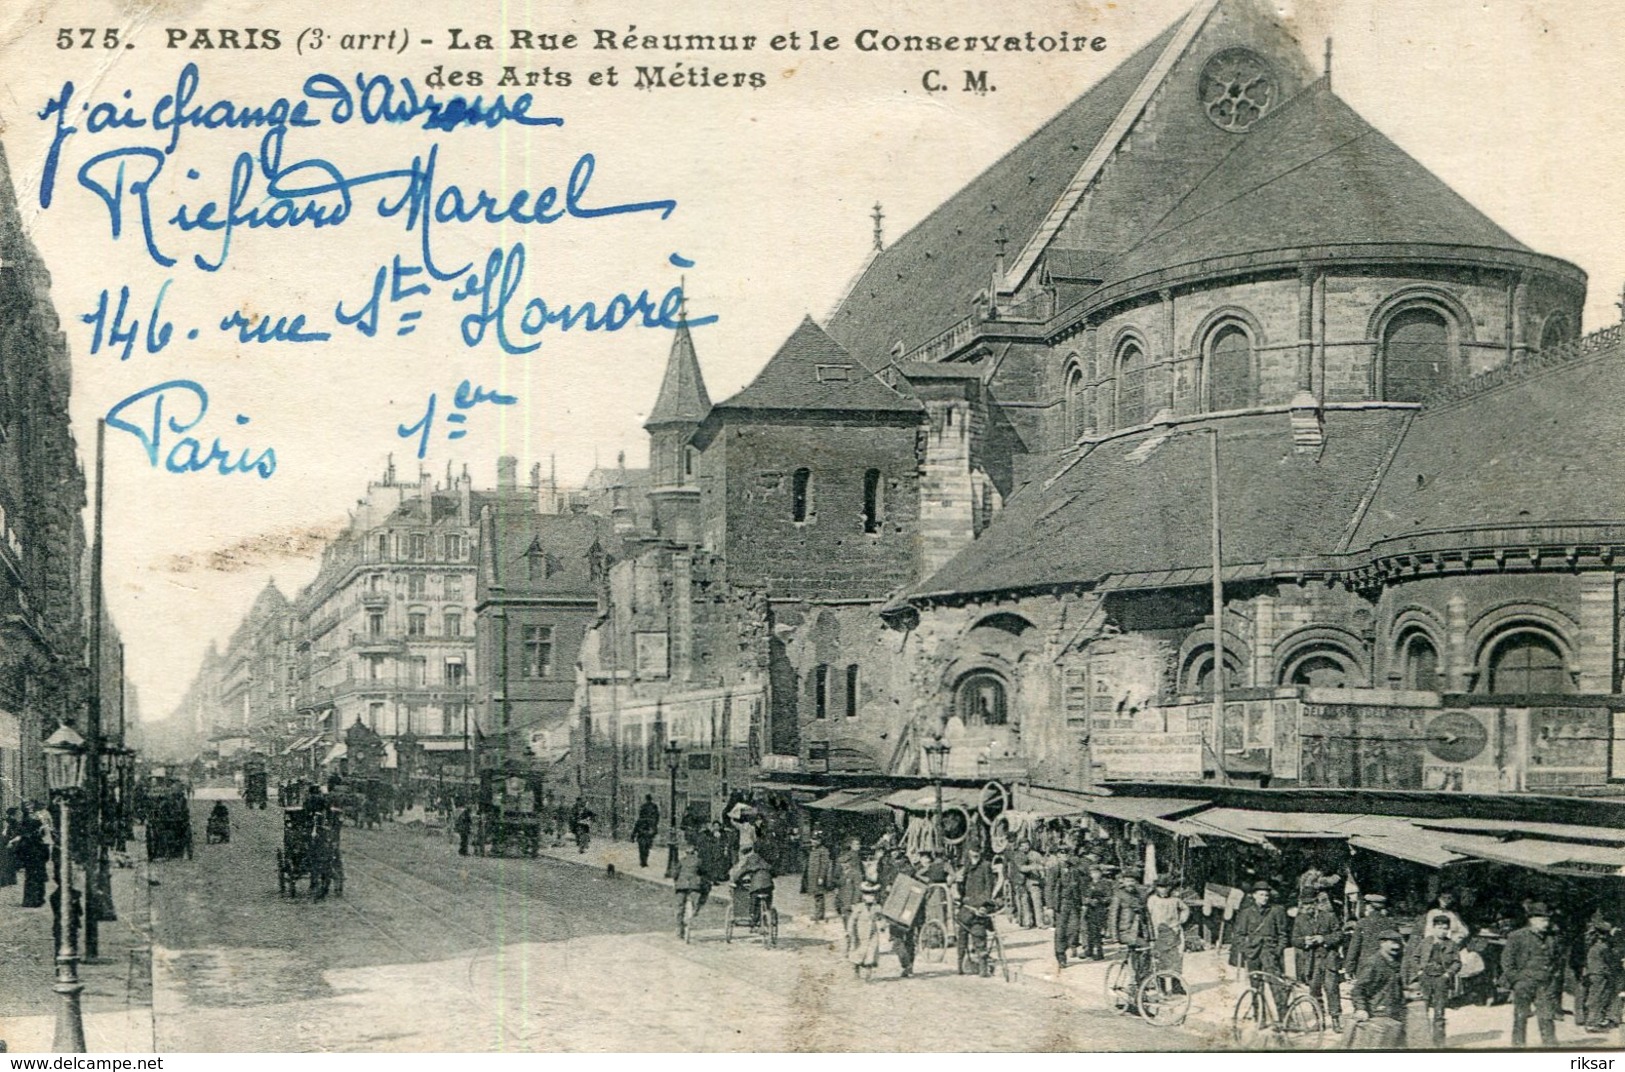 575. PARIS (3e arrt) - La Rue Réaumur et le Conservatoire
des Arts et Métiers C. M.
J'ai change d'Adresse
Richard Marcel
146. rue St Honorè
Paris 1er
delcampe.net
riksar